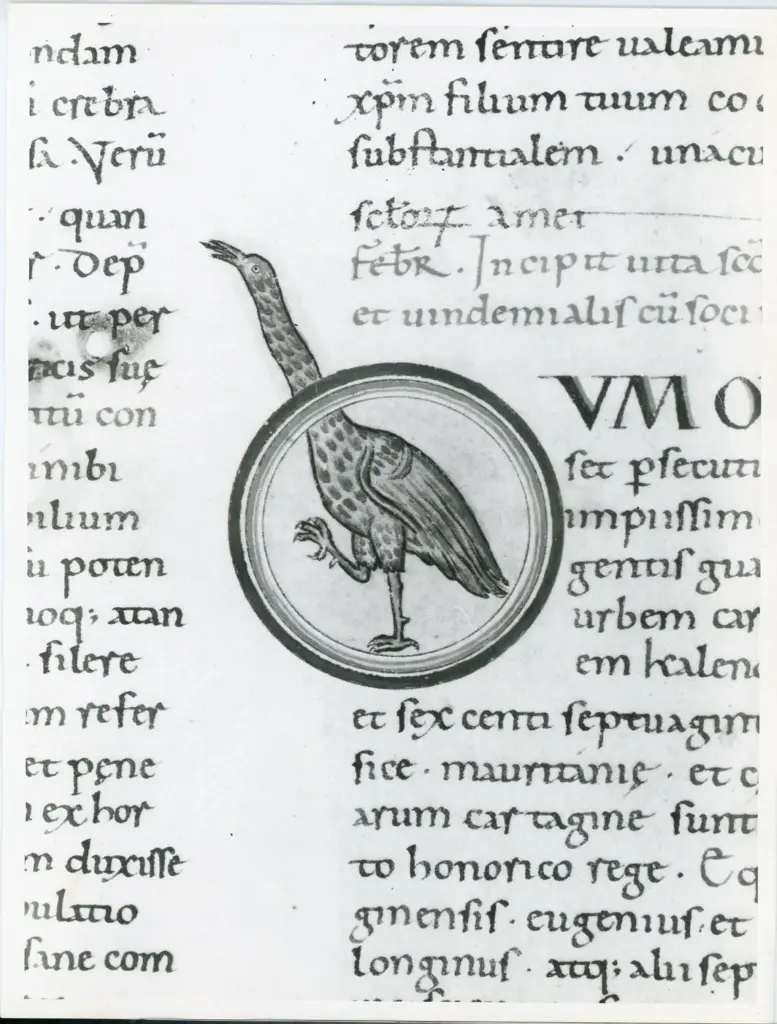 ndam
i crebra
sa. Verū
. quan
r. Dep̄
. ut per
acis suę
ttū con
inibi
ilium
u poten
uoq; atan
. silere
m refer
et pęne
n ex hor
m duxisse
pulatio
sane com
torem sentire ualeamu
xp̄m filium tuum co
substantialem . unacu
Amer
FEBR. Incipit uita sc̄o
et uindemialis cū soci
UM O
set psecuti
impiissim
gentis gua
urbem car
em kalen
et sex centi septuagin
fice . mauritanię . et c
arum cartagine sunt
to honorico rege . Eq
ginensis . eugenius. et
longinus . atq; alii sep